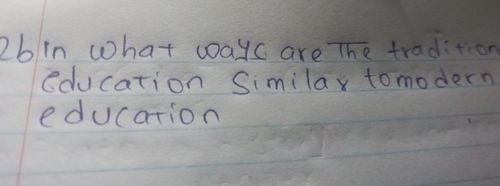 2b in what ways are The tradition
education Similar tomodern
education